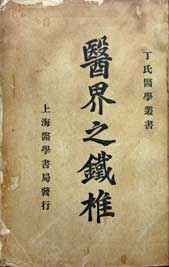 丁氏醫學叢書
醫界之鐵椎
上海醫學書局發行